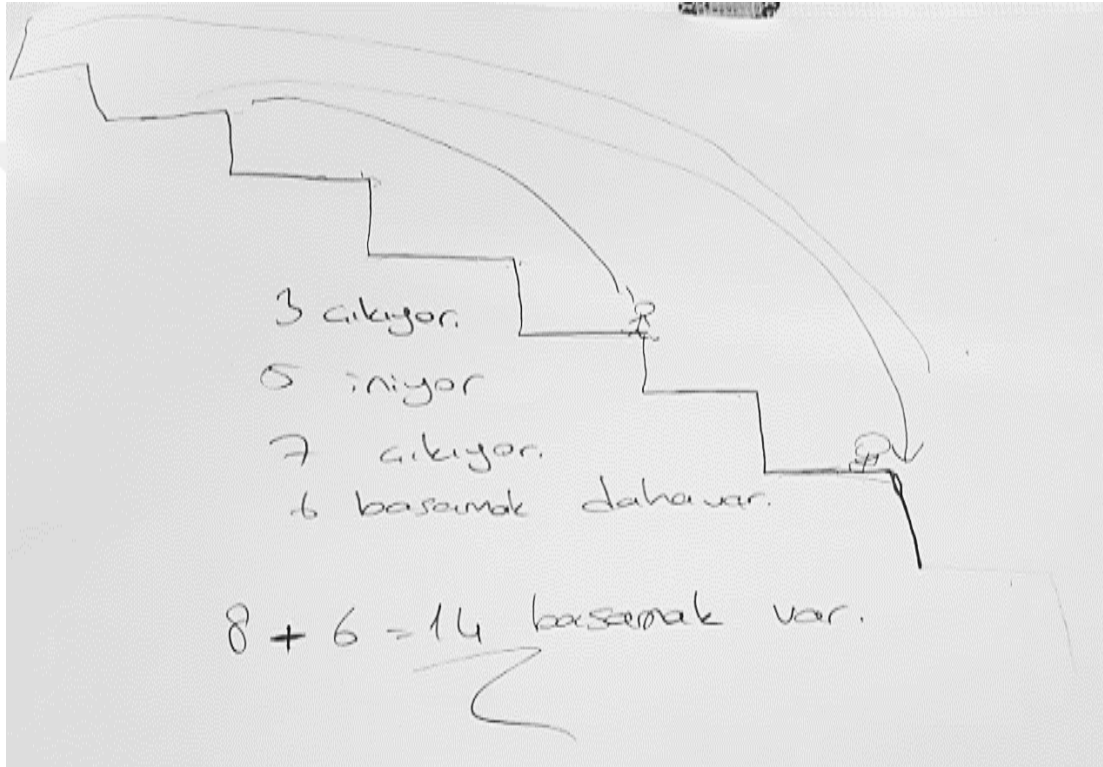 3 çıkıyor.
5 iniyor
7 çıkıyor.
6 basamak daha var.
8 + 6 = 14 basamak var.